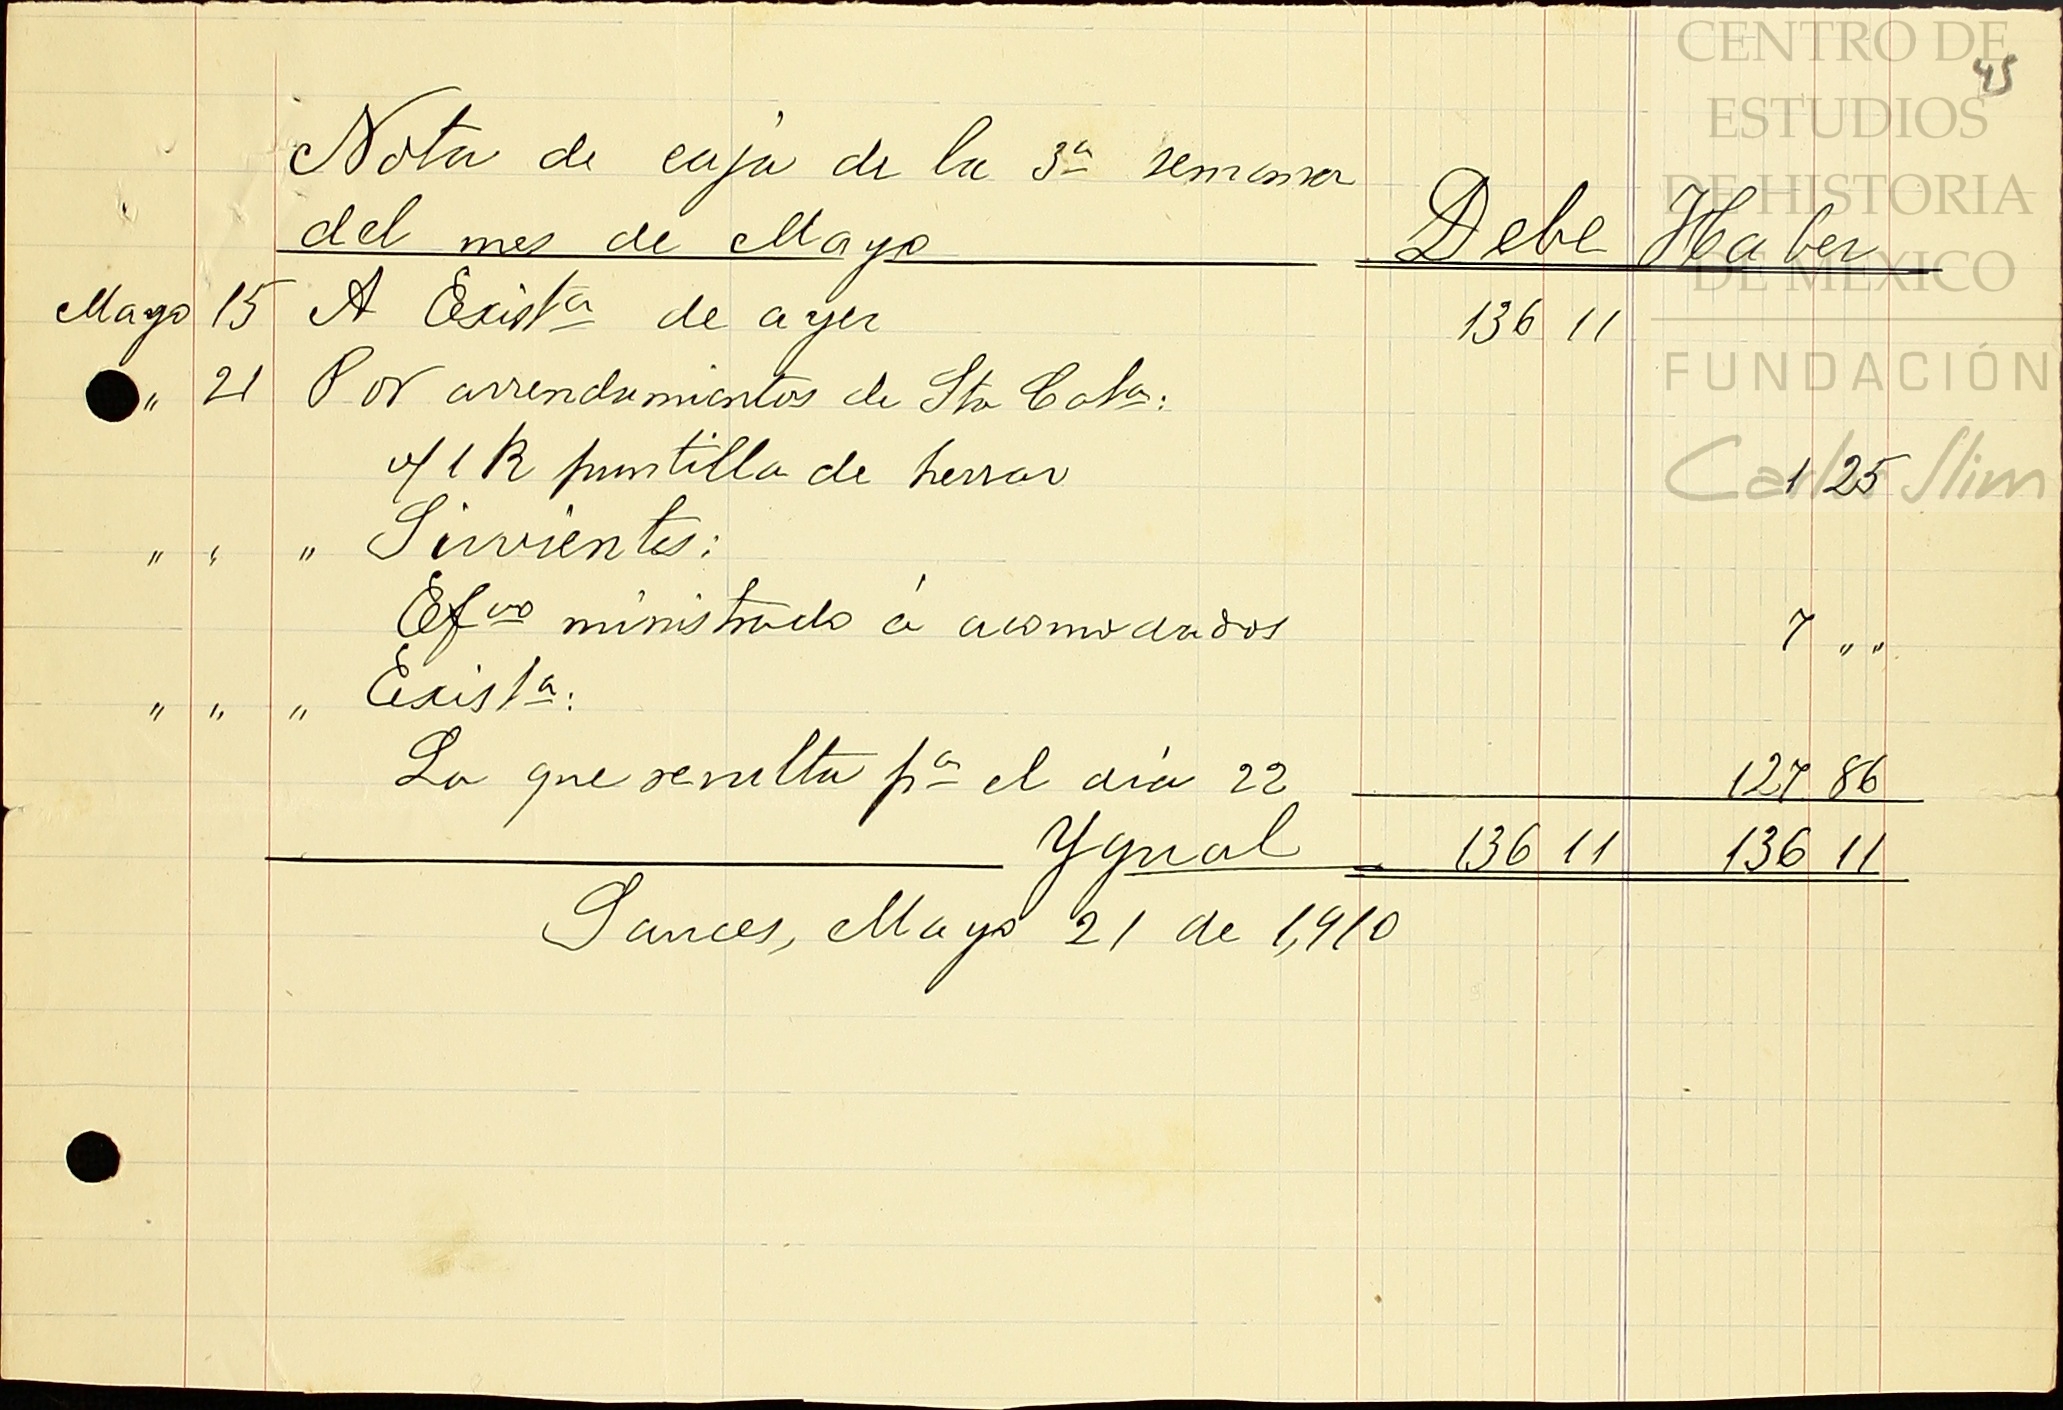 CENTRO DE
ESTUDIOS
DE HISTORIA
DE MEXICO
FUNDACIÓN
Carlos Slim
45
Nota de caja de la 3ª semana
del mes de Mayo Debe Haber
Mayo 15 A Existª de ayer 136 11
" 21 Por arrendamientos de Sta Catª:
1 R puntilla de herrar 1 25
" " " Sirvientes:
Efvo ministrado á acomodados 7 " "
" " " Existª:
La que resulta pª el día 22 127 86
Ygual 136 11 136 11
Sauces, Mayo 21 de 1,910